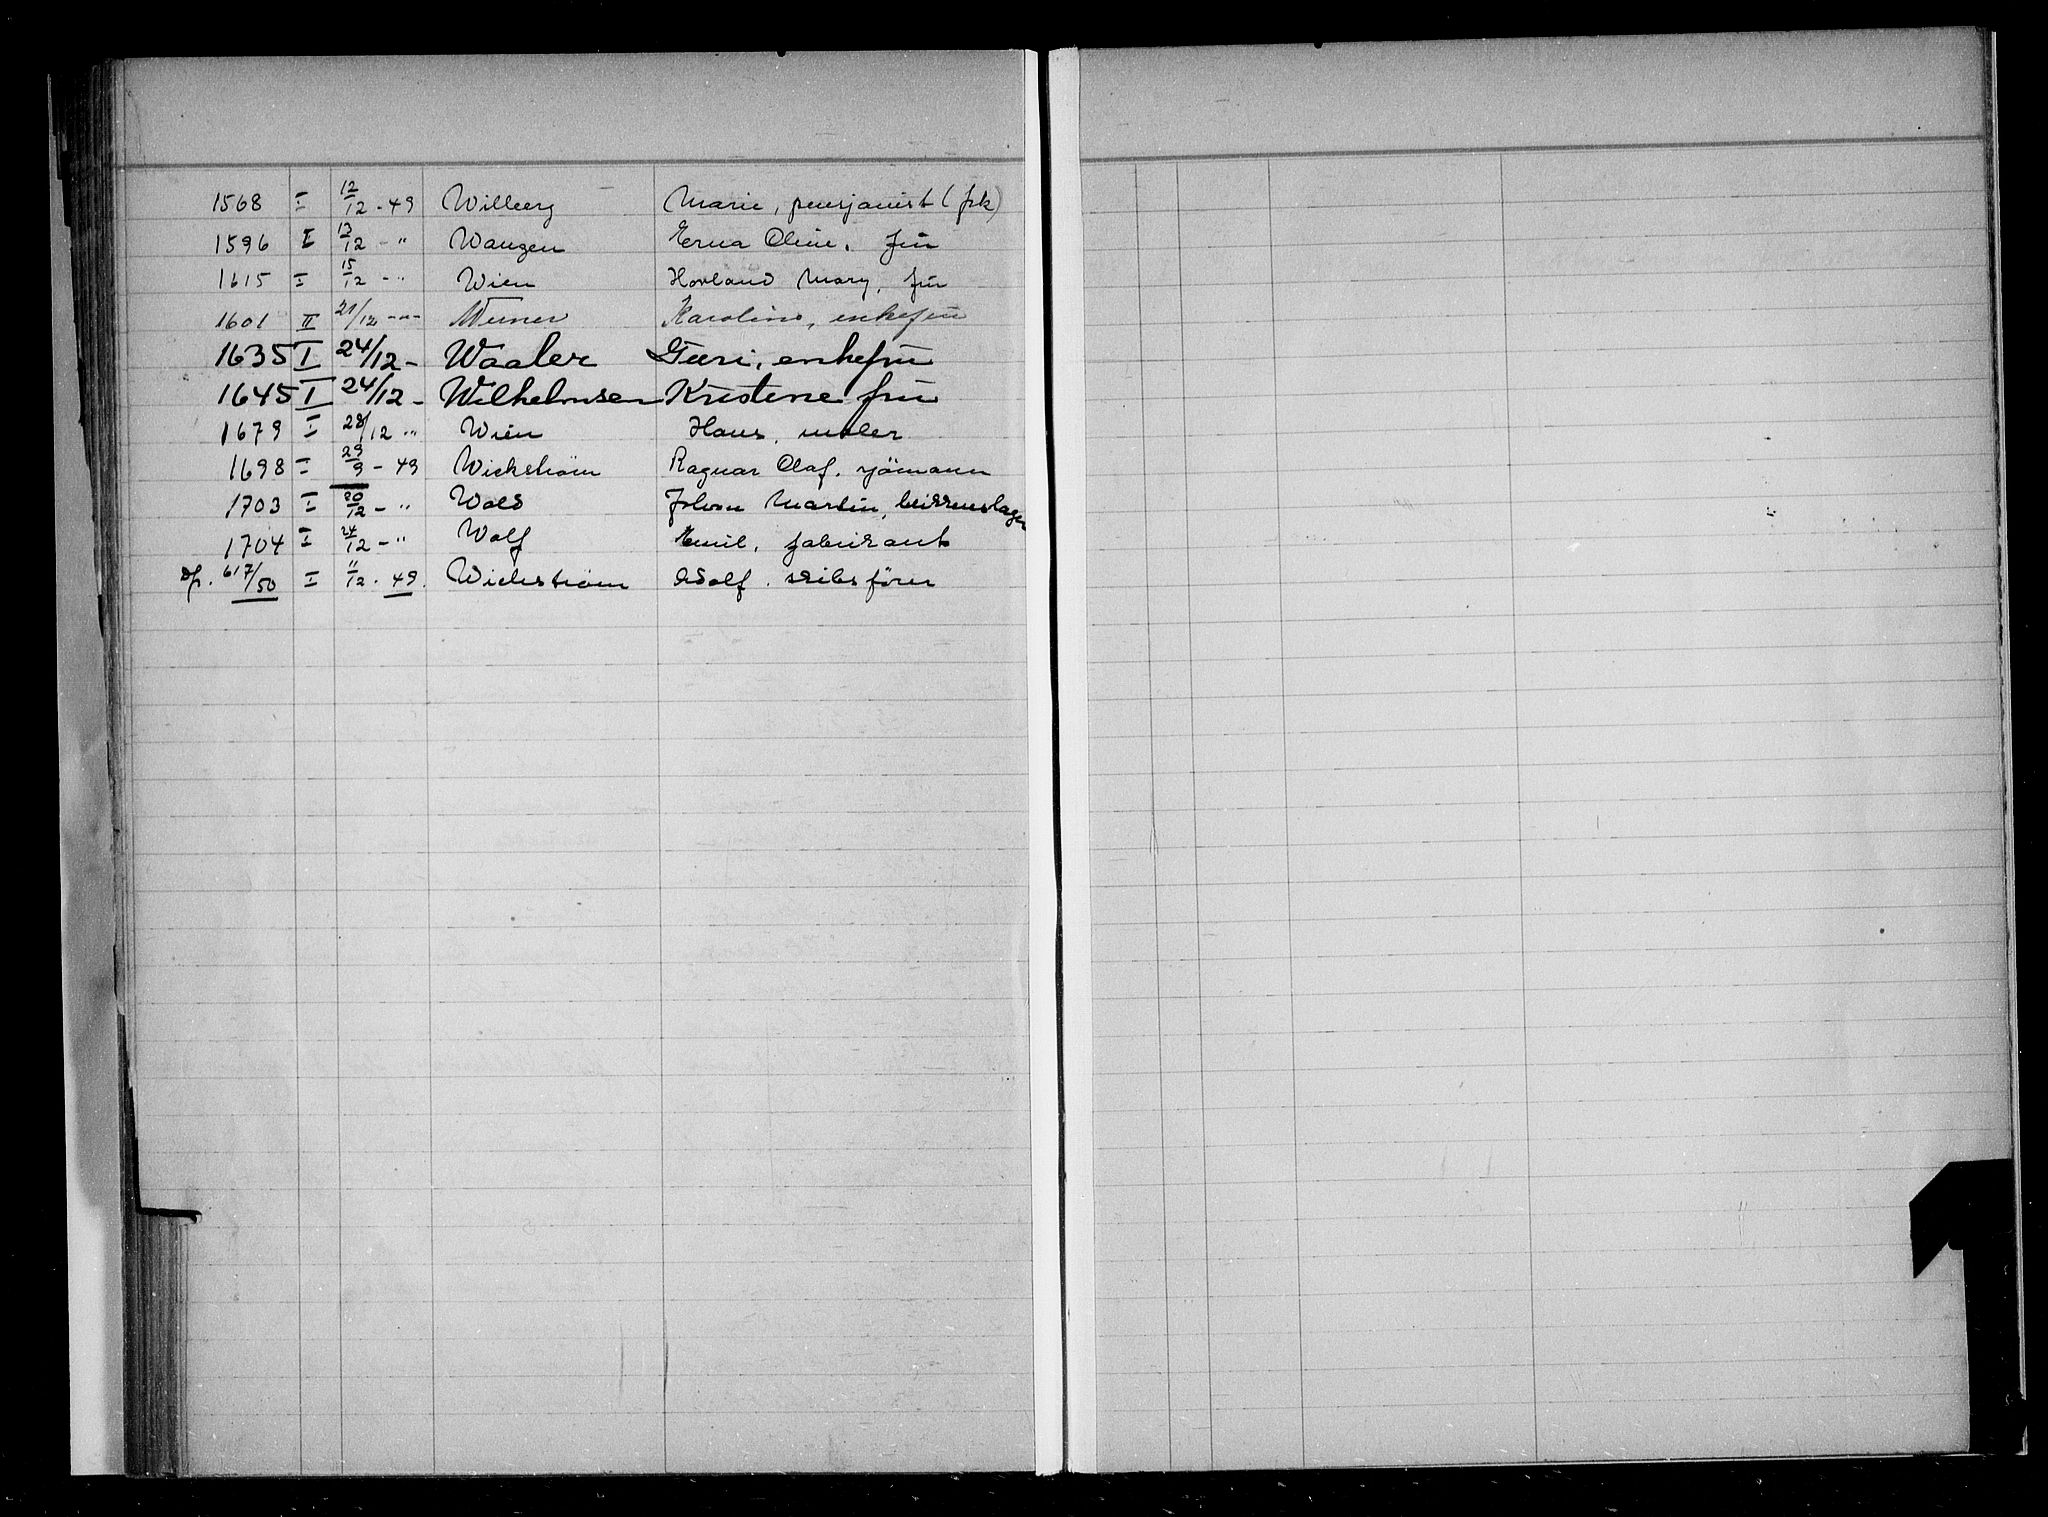 1568 I 12/12 - 49 Willberg Marie, pensjonist (frk)
1596 I 13/12 - " Wangen Erna Oline, frü
1615 I 15/12 - " Wien Hovland Mary, frü
1601 II 21/12 - " - Werner Karoline, enkefrü
1635 I 24/12 - Waaler Guri, enkefrü
1645 I 24/12 - Wilhelmsen Kristine frü
1679 I 28/12 " Wien Hans, maler
1698 I 29/9 - 49 Wickstrøm Ragnar Olaf, sjömann
1703 I 20/12 - " Wold Johan Martin, blikkenslager
1704 I 24/12 - " Wolf Emil, fabrikant
Df. 617/50 I 11/12 - 49. Wickstrøm Adolf, skibsförer